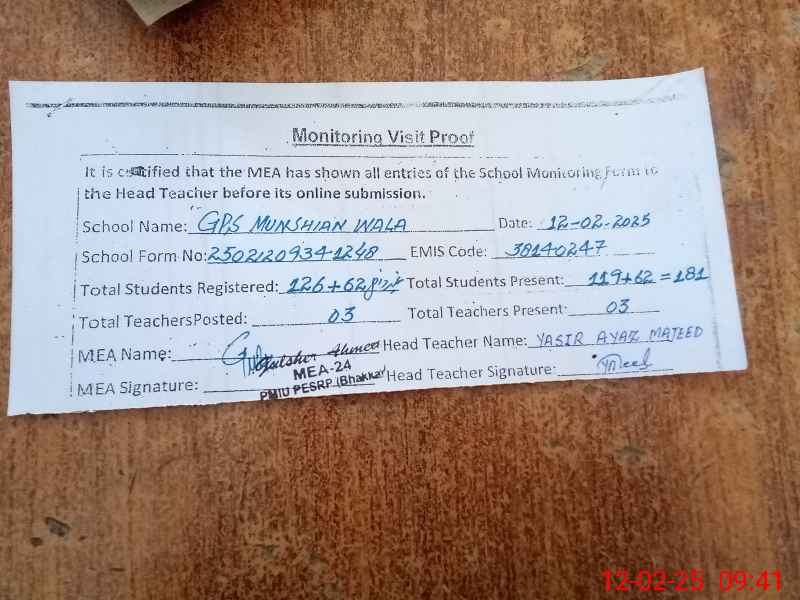 Monitoring Visit Proof
It is certified that the MEA has shown all entries of the School Monitoring Form to
the Head Teacher before its online submission.
School Name: GPS MUNSHIAN WALA Date: 12-02-2025
School Form No: 2502120934-1248 EMIS Code: 38140247
Total Students Registered: 126+62 Total Students Present: 119+62=181
Total Teachers Posted: 03 Total Teachers Present: 03
MEA Name: Gulsher Ahmed Head Teacher Name: YASIR AYAZ MAJEED
MEA-24
MEA Signature: PMIU PESRP (Bhakkar) Head Teacher Signature:
12-02-25 09:41